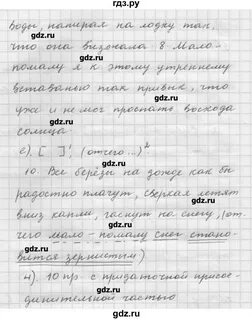 гдз.ру
воды, напирал на лодку так,
что она визжала 8 Мало-
помалу я к этому утреннему
вставанью так привык, что
уже и не мог проспать восхода
солнца
е). [   ]¹, (отчего...)²
10. Все берёзы на дожде как бы
радостно плачут, сверкая летят
вниз капли, гаснут на снегу, (от-
чего мало-помалу снег стано-
вится зернистым)
4). 10 пр. с придаточной присое-
динительной частью